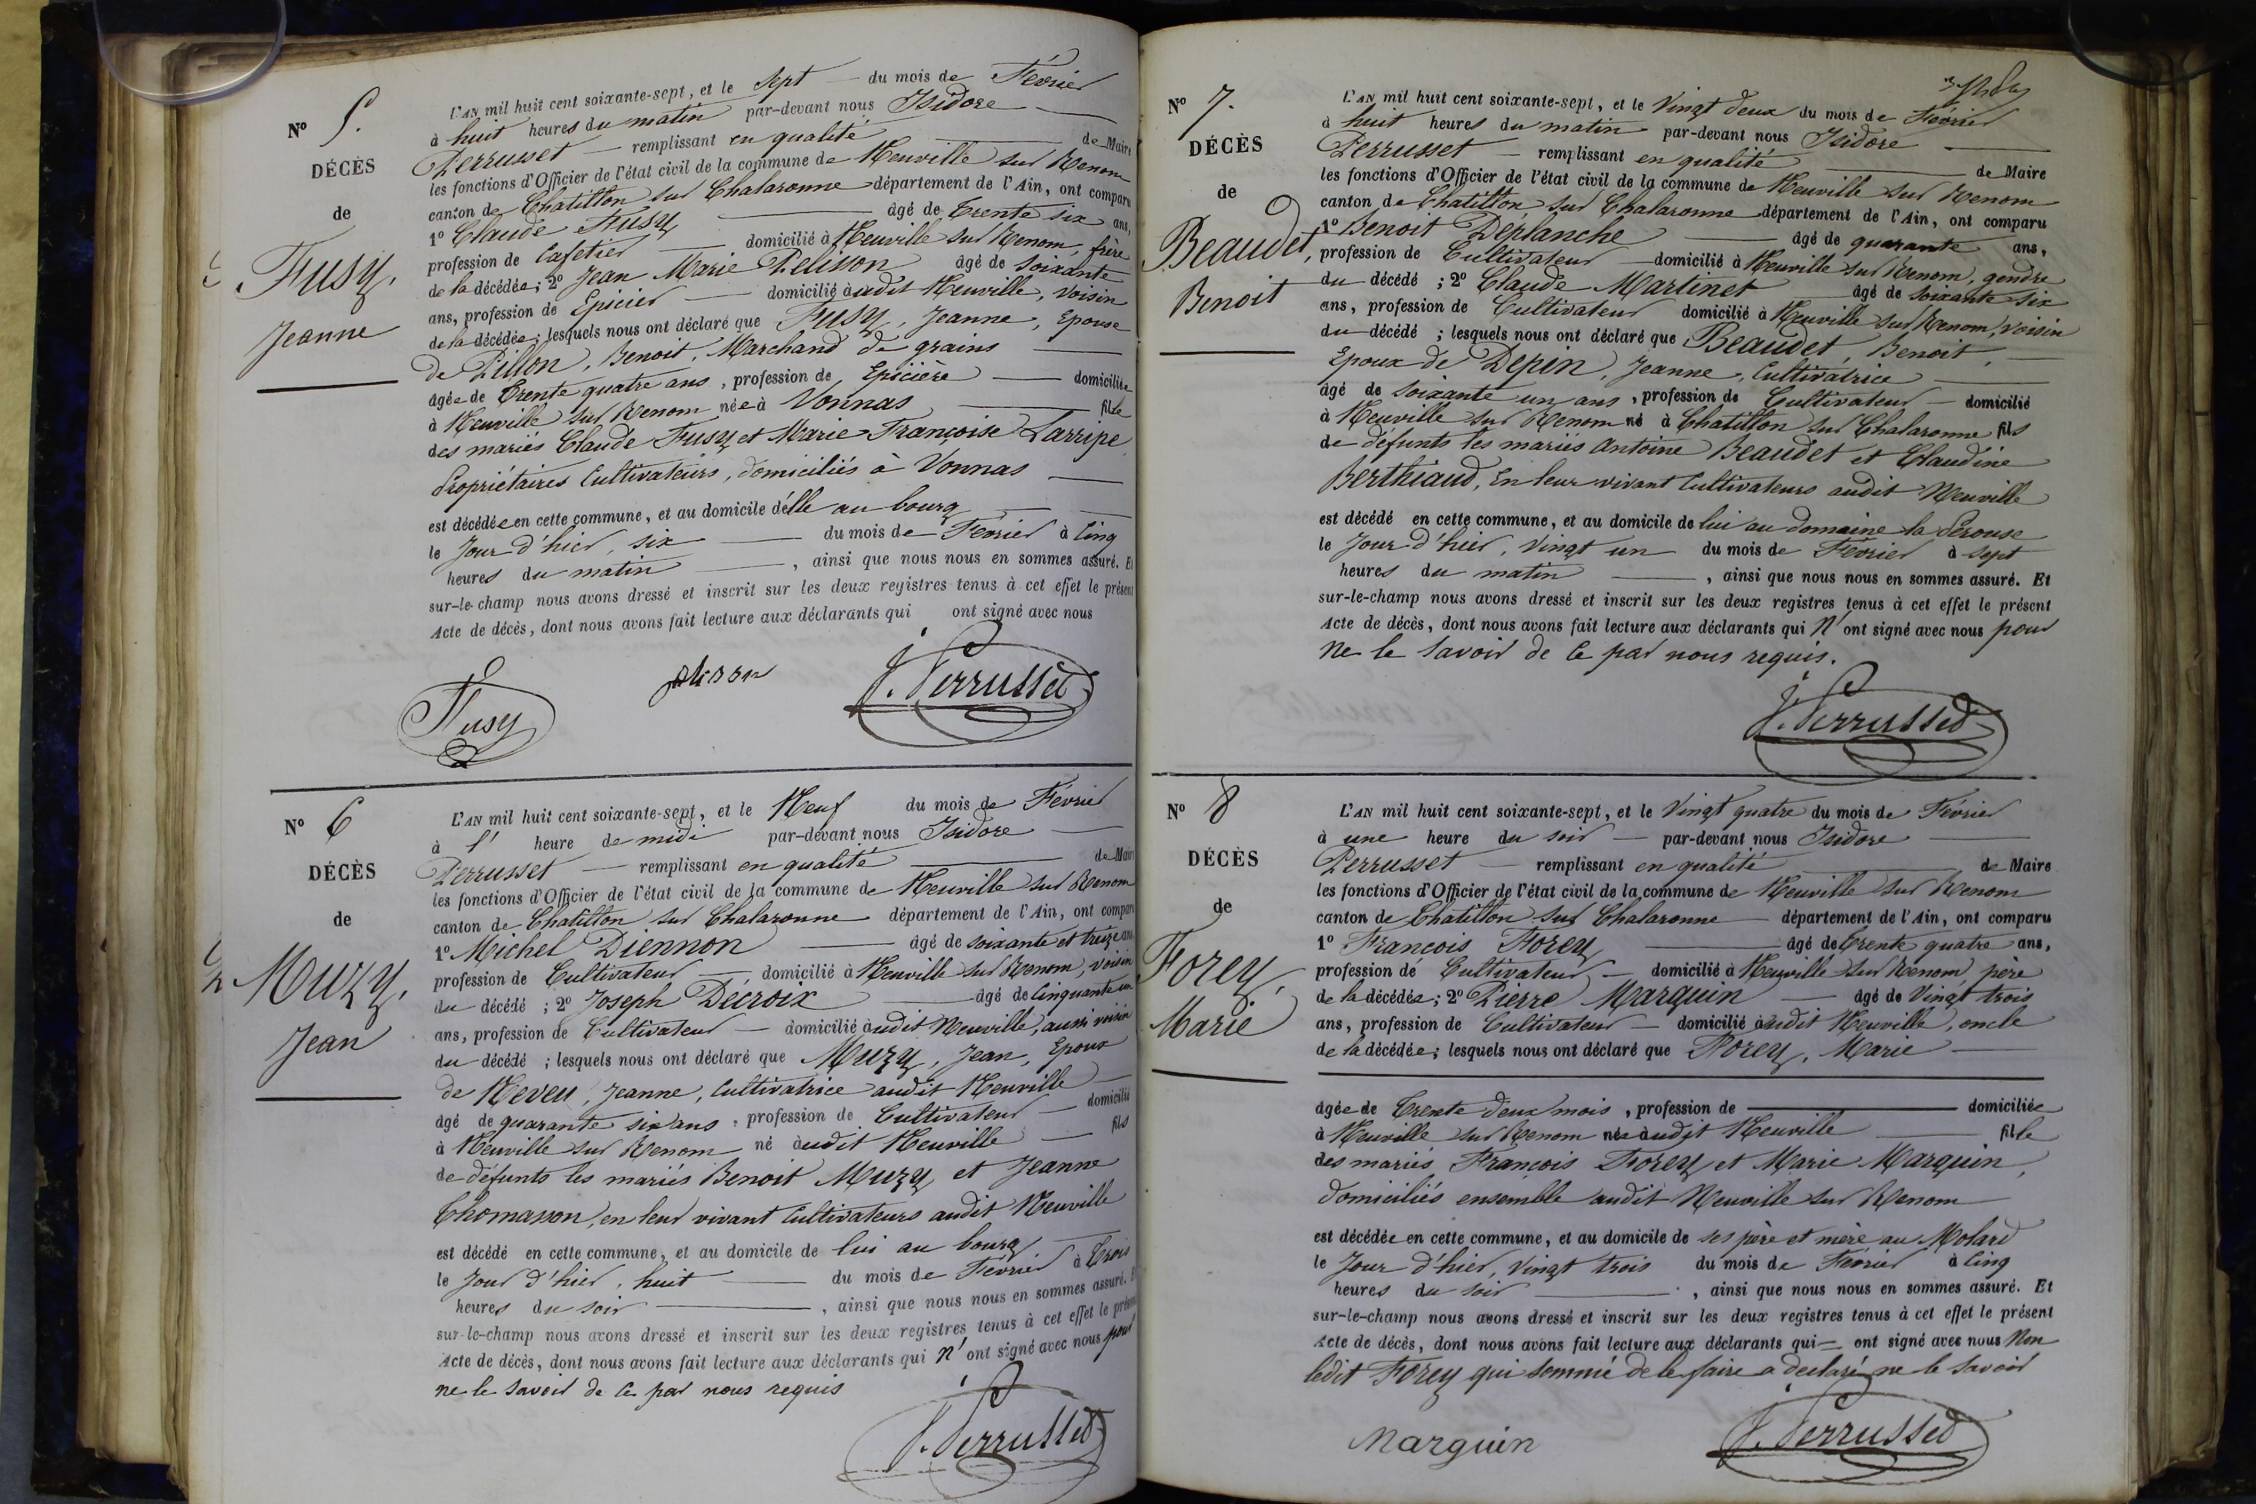 N° 5.
DÉCÈS
de
Fusy,
Jeanne
L'AN mil huit cent soixante-sept, et le sept du mois de Février
à huit heures du matin par-devant nous Isidore
Perrusset remplissant en qualité de Maire
les fonctions d'Officier de l'état civil de la commune de Neuville sur Renom
canton de Chatillon sur Chalaronne département de l'Ain, ont comparu
1° Claude Fusy âgé de trente six ans,
profession de Cafetier domicilié à Neuville sur Renom, frère
de la décédée; 2° Jean Marie Pelisson âgé de soixante
ans, profession de Epicier domicilié audit Neuville, voisin
de la décédée; lesquels nous ont déclaré que Fusy, Jeanne, Epouse
de Pillon, Benoit, Marchand de grains
âgée de trente quatre ans, profession de Epicière domiciliée
à Neuville sur Renom née à Vonnas fille
des mariés Claude Fusy et Marie Françoise Larripe,
Propriétaires Cultivateurs, domiciliés à Vonnas
est décédée en cette commune, et au domicile d'elle au bourg
le Jour d'hier, six du mois de Février à Cinq
heures du matin, ainsi que nous nous en sommes assuré. Et
sur-le-champ nous avons dressé et inscrit sur les deux registres tenus à cet effet le présent
Acte de décès, dont nous avons fait lecture aux déclarants qui ont signé avec nous
Fusy J. Perrusset
N° 6
DÉCÈS
de
Muzy,
Jean
L'AN mil huit cent soixante-sept, et le Neuf du mois de Février
à l' heure de midi par-devant nous Isidore
Perrusset remplissant en qualité de Maire
les fonctions d'Officier de l'état civil de la commune de Neuville sur Renom
canton de Chatillon sur Chalaronne département de l'Ain, ont comparu
1° Michel Diennon âgé de soixante et treize ans,
profession de Cultivateur domicilié à Neuville sur Renom, voisin
du décédé; 2° Joseph Décroix âgé de Cinquante un
ans, profession de Cultivateur domicilié audit Neuville, aussi voisin
du décédé; lesquels nous ont déclaré que Muzy, Jean, Epoux
de Neveu, Jeanne, Cultivatrice audit Neuville
âgé de quarante six ans, profession de Cultivateur domicilié
à Neuville sur Renom né audit Neuville fils
de défunts les mariés Benoit Muzy et Jeanne
Thomasson, en leur vivant Cultivateurs audit Neuville
est décédé en cette commune, et au domicile de lui au bourg
le Jour d'hier, huit du mois de Février à Trois
heures du soir, ainsi que nous nous en sommes assuré. Et
sur-le-champ nous avons dressé et inscrit sur les deux registres tenus à cet effet le présent
Acte de décès, dont nous avons fait lecture aux déclarants qui n'ont signé avec nous pour
ne le savoir de ce par nous requis
J. Perrusset
N° 7.
DÉCÈS
de
Beaudet,
Benoit
L'AN mil huit cent soixante-sept, et le Vingt deux du mois de Février
à huit heures du matin par-devant nous Isidore
Perrusset remplissant en qualité de Maire
les fonctions d'Officier de l'état civil de la commune de Neuville sur Renom
canton de Chatillon sur Chalaronne département de l'Ain, ont comparu
1° Benoit Déplanche âgé de quarante ans,
profession de Cultivateur domicilié à Neuville sur Renom, gendre
du décédé; 2° Claude Martinet âgé de soixante six
ans, profession de Cultivateur domicilié à Neuville sur Renom, voisin
du décédé; lesquels nous ont déclaré que Beaudet, Benoit,
Epoux de Depin, Jeanne, Cultivatrice
âgé de soixante un ans, profession de Cultivateur domicilié
à Neuville sur Renom né à Chatillon sur Chalaronne fils
de défunts les mariés Antoine Beaudet et Claudine
Berthiaud, En leur vivant Cultivateurs audit Neuville
est décédé en cette commune, et au domicile de lui au domaine la Pérouse
le Jour d'hier, Vingt un du mois de Février à sept
heures du matin, ainsi que nous nous en sommes assuré. Et
sur-le-champ nous avons dressé et inscrit sur les deux registres tenus à cet effet le présent
Acte de décès, dont nous avons fait lecture aux déclarants qui N'ont signé avec nous pour
ne le savoir de ce par nous requis.
J. Perrusset
N° 8
DÉCÈS
de
Forey,
Marie
L'AN mil huit cent soixante-sept, et le Vingt quatre du mois de Février
à une heure du soir par-devant nous Isidore
Perrusset remplissant en qualité de Maire
les fonctions d'Officier de l'état civil de la commune de Neuville sur Renom
canton de Chatillon sur Chalaronne département de l'Ain, ont comparu
1° François Forey âgé de Trente quatre ans,
profession de Cultivateur domicilié à Neuville sur Renom, père
de la décédée; 2° Pierre Marguin âgé de Vingt trois
ans, profession de Cultivateur domicilié audit Neuville, oncle
de la décédée; lesquels nous ont déclaré que Forey, Marie
âgée de Trente deux mois, profession de domiciliée
à Neuville sur Renom née audit Neuville fille
des mariés François Forey et Marie Marguin,
domiciliés ensemble audit Neuville sur Renom
est décédée en cette commune, et au domicile de ses père et mère au Molard
le Jour d'hier, Vingt trois du mois de Février à Cinq
heures du soir, ainsi que nous nous en sommes assuré. Et
sur-le-champ nous avons dressé et inscrit sur les deux registres tenus à cet effet le présent
Acte de décès, dont nous avons fait lecture aux déclarants qui ont signé avec nous Non
ledit Forey qui sommé de le faire a declaré ne le savoir
Marguin J. Perrusset